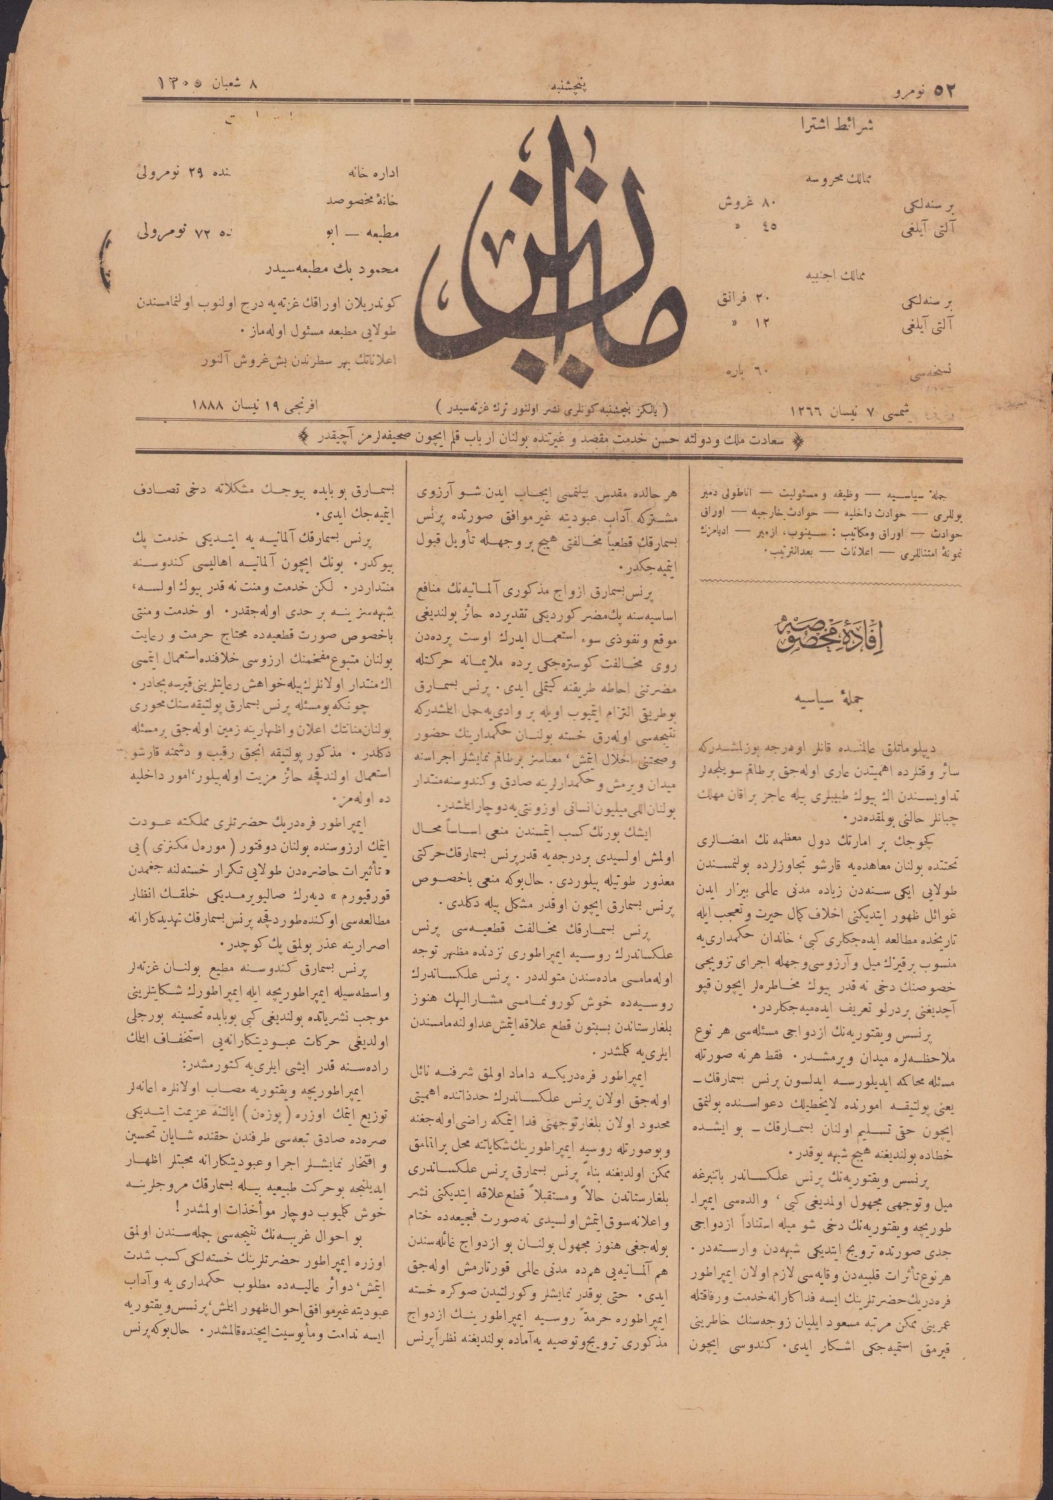 ٥٢ نومرو
پنجشنبه
٨ شعبان ١٣٠٥
شرائط اشترا
ممالك محروسه
بر سنه‌لكى ٨٠ غروش
آلتى آيلغى ٤٥ »
ممالك اجنبيه
بر سنه‌لكى ٢٠ فرانق
آلتى آيلغى ١٢ »
نسخه‌سى ٦٠ پاره
شمسى ٧ نيسان ١٢٦٦
( يالكز پنجشنبه كونلرى نشر اولنور ترك غزته‌سيدر )
اداره خانه نده ٢٩ نومرولى
خانهٔ مخصوصدر
مطبعه — ابو ٧٢ نومرولى
محمود بك مطبعه‌سيدر
كوندريلان اوراقك غزته‌يه درج اولنوب اولنمامسندن
طولايى مطبعه مسئول اوله‌ماز ٠
اعلاناتك بهر سطرندن بش غروش آلنور
افرنجى ١٩ نيسان ١٨٨٨
سعادت ملك و دولته حسن خدمت مقصد و غيرتنده بولنان ارباب قلم ايچون صحيفه‌لرمز آچيقدر
جملهٔ سياسيه — وظيفه و مسئوليت — اناطولى دمير
يوللرى — حوادث داخليه — حوادث خارجيه — اوراق
حوادث — اوراق ومكاتيب : سينوب، ازمير — ادبامزك
نمونهٔ امتثاللرى — اعلانات — بعدالترتيب ٠
افادهٔ مخصوصه
جملهٔ سياسيه
ديپلوماتلق عالمنده قانلر اودرجه بوزلمشدركه
سائر وقتلرده اهميتدن عارى اوله‌جق برطاقم سويلجه‌لر
تداويسندن اك بيوك طبيبلرى بيله عاجز براقان مهلك
چبانلر حالنى بولمقده‌در ٠
كچوجك بر امارتك دول معظمه‌نك امضالرى
تحتنده بولنان معاهده‌يه قارشو تجاوزلرده بولنمسندن
طولايى ايكى سنه‌دن زياده مدنى عالمى بيزار ايدن
غوائل ظهور ايتديكنى اخلاف كمال حيرت وتعجب ايله
تاريخده مطالعه ايده‌جكلرى كبى، خاندان حكمدارى‌يه
منسوب برقيزك ميل و آرزوسى وجهله اجراى تزويجى
خصوصنك دخى نه قدر بيوك مخاطره‌لر ايچون قپو
آچديغنى بردرلو تعريف ايده‌ميه‌جكلردر ٠
پرنسس ويقتوريه‌نك ازدواجى مسئله‌سى هر نوع
ملاحظه‌لره ميدان ويرمشدر ٠ فقط هر نه صورتله
مسئله محاكمه ايديلورسه ايدلسون پرنس بسمارقك —
يعنى پولتيقه امورنده لايخطيلك دعواسنده بولنمق
ايچون حق تسليم اولنان بسمارقك — بو ايشده
خطاده بولنديغنه هيچ شبهه يوقدر ٠
پرنسس ويقتوريه‌نك پرنس علكساندر باتنبرغه
ميل وتوجهى مجهول اولمديغى كبى ، والده‌سى ايمپرا-
طوريچه ويقتوريه‌نك دخى شو ميله استناداً ازدواجى
جدى صورتده ترويج ايتديكى شبهه‌دن وارسته‌در ٠
هر نوع تأثرات قلبيه‌دن وقايه‌سى لازم اولان ايمپراطور
فره‌دريك حضرتلرينك ايسه فداكارانه خدمت ورفاقتله
عمرينى ممكن مرتبه مسعود ايليان زوجه‌سنك خاطرينى
قيرمق استميه‌جكى اشكار ايدى ٠ كندوسى ايچون
هر حالده مقدس بيلنمسى ايجاب ايدن شو آرزوى
مشتركه آداب عبوديته غير موافق صورتده پرنس
بسمارقك قطعياً مخالفتى هيچ بر وجهله تأويل قبول
ايتميه‌جكدر ٠
پرنس بسمارق ازواج مذكورى آلمانيه‌نك منافع
اساسيه‌سنه پك مضر كورديكى تقديرده حائز بولنديغى
موقع ونفوذى سوء استعمال ايدرك اوست پرده‌دن
روى مخالفت كوستره‌جكى يرده ملايمانه حركتله
مضرتنى احاطه طريقنه كيتملى ايدى ٠ پرنس بسمارق
بوطريق التزام ايتميوب اويله بر وادى‌يه حمل ايتمشدركه
نتيجه‌سى اوله‌رق خسته بولنان حكمدارينك حضور
وصحتنى اخلال ايتمش ، معناسز برطاقم نمايشلر اجراسنه
ميدان ويرمش و حكمدارلرينه صادق وكندوسنه منتدار
بولنان اللى ميليون انسانى اوزونتى‌يه دوچار ايتمشدر ٠
ايشك بورنك كسب ايتمسندن منعى اساساً محال
اولمش اولسيدى بردرجه‌يه قدر پرنس بسمارقك حركتى
معذور طوتيله بيلوردى ٠ حال‌بوكه منعى باخصوص
پرنس بسمارق ايچون اوقدر مشكل بيله دكلدى ٠
پرنس بسمارقك مخالفت قطعيه‌سى پرنس
علكساندرك روسيه ايمپراطورى نزدنده مظهر توجه
اوله‌مامسى ماده‌سندن متولددر ٠ پرنس علكساندرك
روسيه‌ده خوش كورونمامسى مشاراليهك هنوز
بلغارستاندن بسبتون قطع علاقه ايتمش عد اولنه‌مامسندن
ايلرى‌يه كلمشدر ٠
ايمپراطور فره‌دريكه داماد اولمق شرفنه نائل
اوله‌جق اولان پرنس علكساندرك حد ذاتنده اهميتى
محدود اولان بلغار توجهنى فدا ايتمكه راضى اوله‌جغنه
وبوصورتله روسيه ايمپراطورينك شكاياتنه محل براقمامق
ممكن اولديغنه بناءً پرنس بسمارق پرنس علكساندرى
بلغارستاندن حالاً ومستقبلاً قطع علاقه ايتديكنى نشر
واعلانه سوق ايتمش اولسيدى نه صورت فجيعه‌ده ختام
بوله‌جغى هنوز مجهول بولنان بو ازدواج غائله‌سندن
هم آلمانيه‌يى هم‌ده مدنى عالمى قورتارمش اوله‌جق
ايدى ٠ حتى بوقدر نمايشلر وكورلتيدن صوكره خسته
ايمپراطوره حرمةً روسيه ايمپراطورينك ازدواج
مذكورى ترويج وتوصيه يه آماده بولنديغنه نظراً پرنس
بسمارق بو بابده بيوجك مشكلاته دخى تصادف
ايتميه‌جك ايدى ٠
پرنس بسمارقك آلمانيه يه ايتديكى خدمت پك
بيوكدر ٠ بونك ايچون آلمانيه اهاليسى كندوسنه
منتداردر ٠ لكن خدمت ومنت نه قدر بيوك اولسه،
شبهه‌سز ينه بر حدى اوله‌جقدر ٠ او خدمت ومنتى
باخصوص صورت قطعيه‌ده محتاج حرمت و رعايت
بولنان متبوع مفخمنك ارزوسى خلافنده استعمال ايتمسى
اك منتدار اولانلرك بيله خواهش رعايتلرينى قيرسه بجادر ٠
چونكه بو مسئله پرنس بسمارق پولتيقه‌سنك محورى
بولنان متانتك اعلان واظهارينه زمين اوله‌جق بر مسئله
دكلدر ٠ مذكور پولتيقه انجق رقيب و دشمنه قارشو
استعمال اولندقجه حائز مزيت اوله‌بيلور، امور داخليه
ده اوله‌مز ٠
ايمپراطور فره‌دريك حضرتلرى مملكته عودت
ايتمك ارزوسنده بولنان دوقتور ( موره‌ل مكنزى ) يى
« تأثيرات حاضره‌دن طولايى تكرار خسته‌لنه‌جغمدن
قورقيورم » ديه‌رك صاليويرمديكى خلقك انظار
مطالعه‌سى اوكنده طوردقجه پرنس بسمارقك تهديدكارانه
اصرارينه عذر بولمق پك كوچدر ٠
پرنس بسمارق كندوسنه مطيع بولنان غزته‌لر
واسطه‌سيله ايمپراطوريچه ايله ايمپراطورك شكايتلرينى
موجب نشرياتده بولنديغى كبى بوبابده تحسينه بورجلى
اولديغى حركات عبوديتكارانه‌يى استخفاف ايتمك
راده‌سنه قدر ايشى ايلرى‌يه كتورمشدر :
ايمپراطوريچه ويقتوريه مصاب اولانلره اعانه‌لر
توزيع ايتمك اوزره ( پوزه‌ن ) ايالتنه عزيمت ايتديكى
صره‌ده صادق تبعه‌سى طرفندن حقنده شايان تحسين
و افتخار نمايشلر اجرا وعبوديتكارانه محبتلر اظهار
ايدلينجه بوحركت طبيعيه بيله بسمارقك مروجلرينه
خوش كلميوب دوچار مؤاخذات اولمشدر !
بو احوال غريبه‌نك نتيجه‌سى جمله‌سندن اولمق
اوزره ايمپراطور حضرتلرينك خسته‌لكى كسب شدت
ايتمش، دوائر عاليه‌ده مطلوب حكمدارى يه وآداب
عبوديته غير موافق احوال ظهور ايتمش، پرنسس ويقتوريه
ايسه ندامت ومأيوسيت ايچنده قالمشدر ٠ حال‌بوكه پرنس